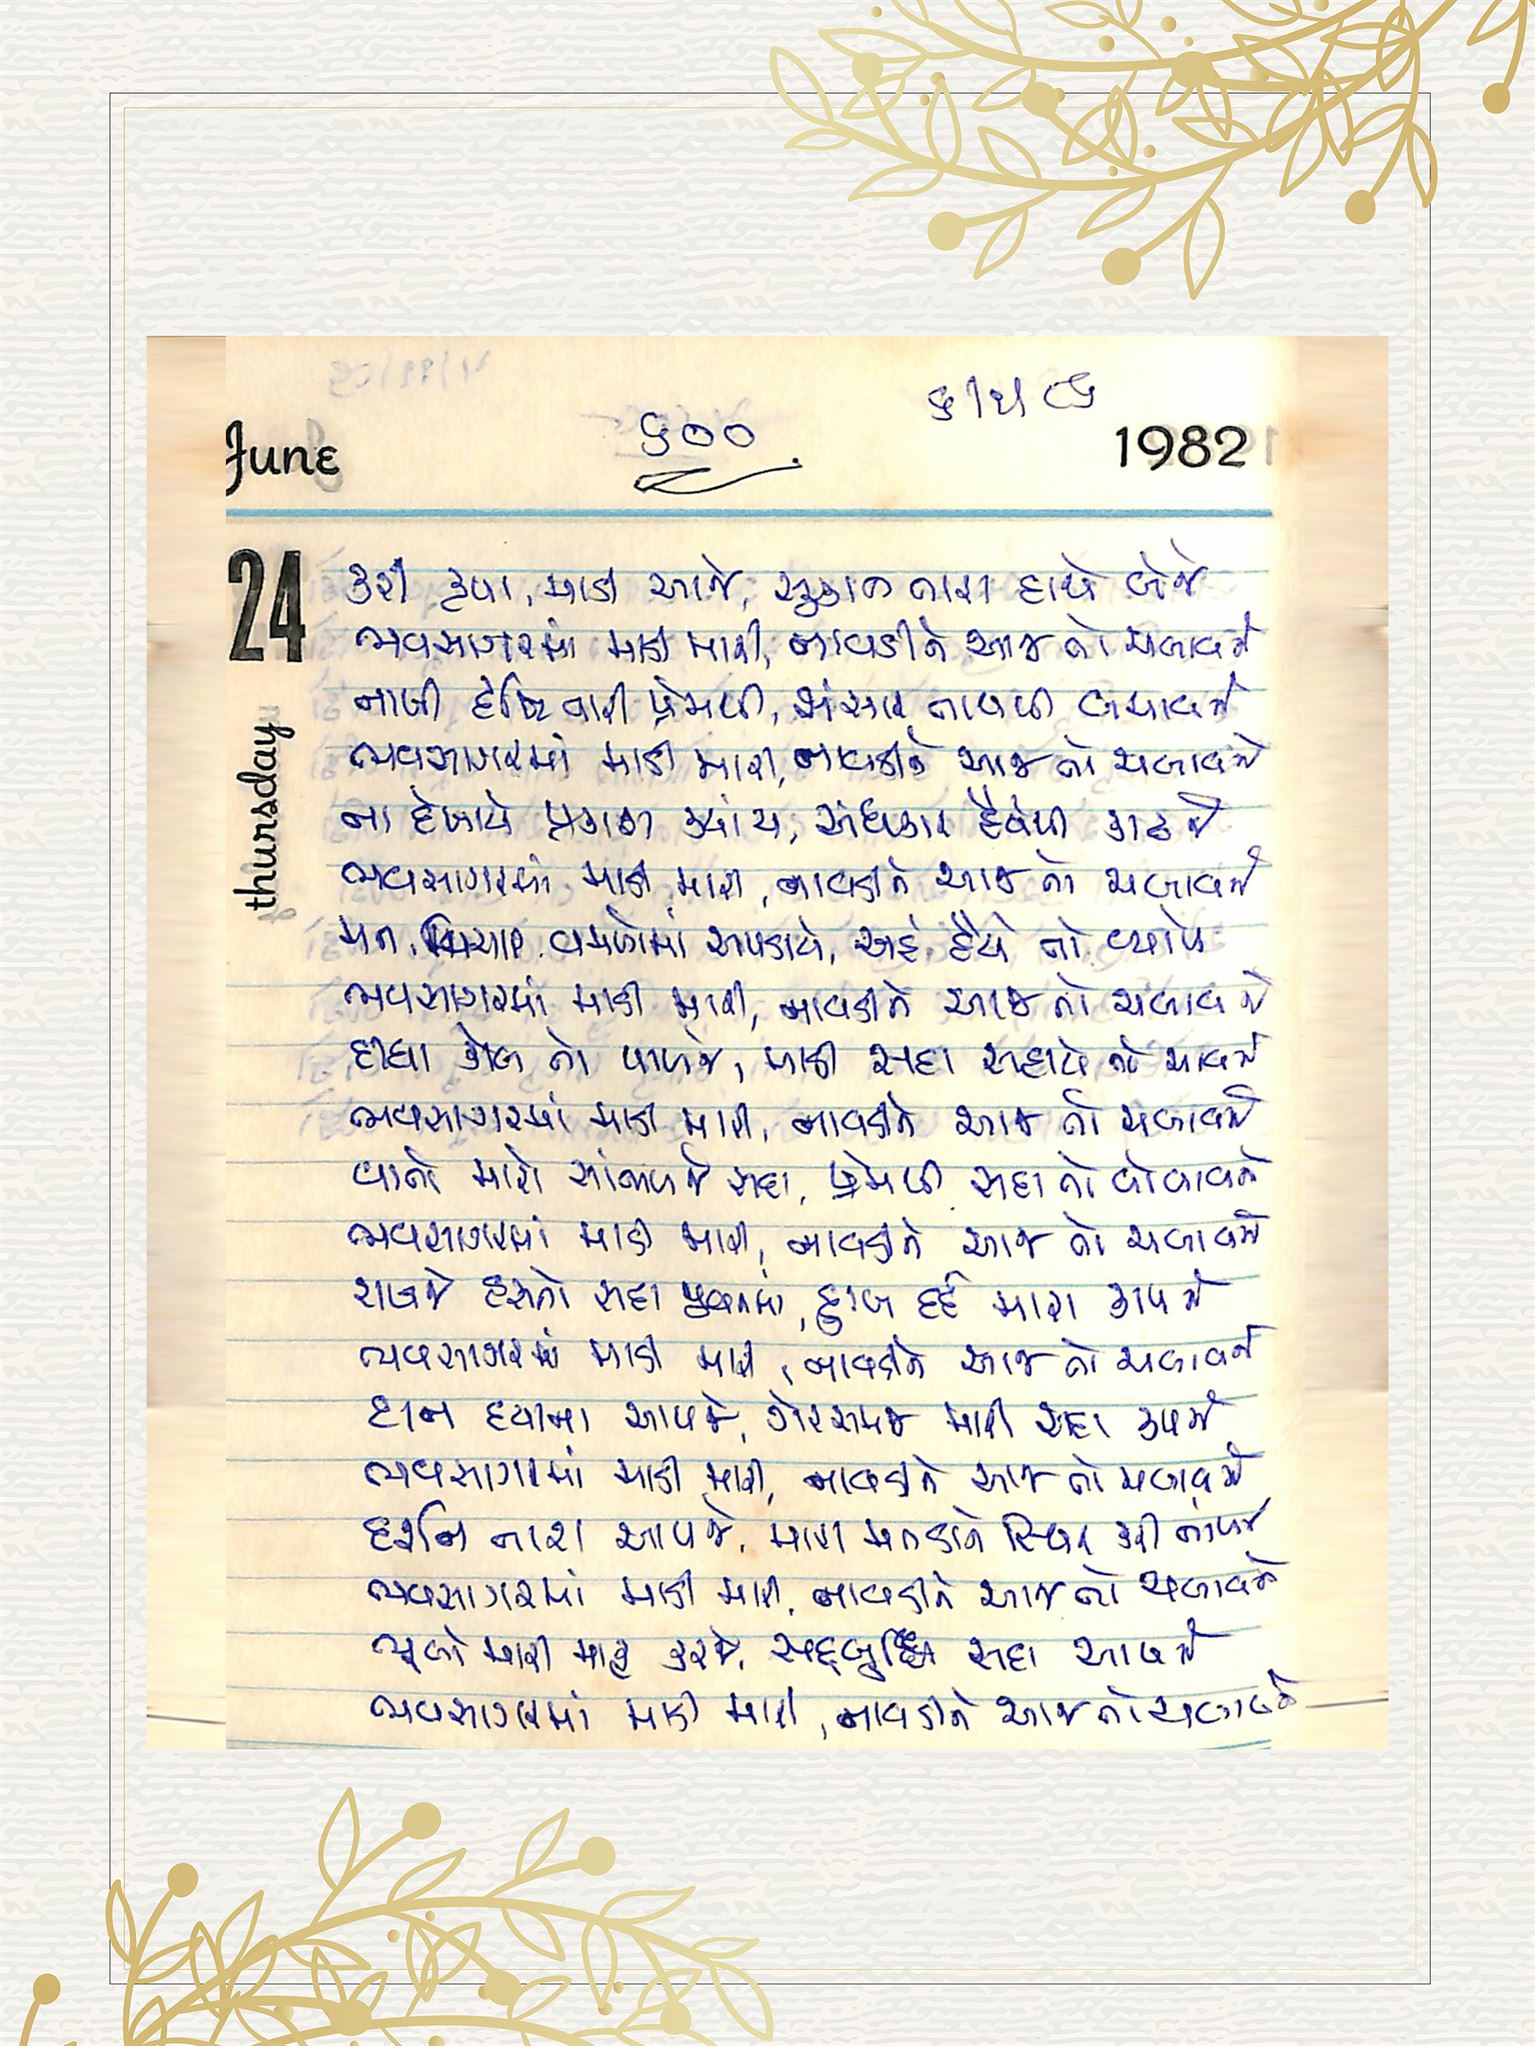 ૬/૫/૮૬
૬૦૦
June
1982
24
thursday
કરી કૃપા, માડી આજે, સુકાન તારા હાથે લેજે
ભવસાગરમાં માડી મારી, નાવડીને આજ તો ચલાવજે
નાખી દૃષ્ટિ તારી પ્રેમથી, સંસાર તાપથી બચાવજે
ભવસાગરમાં માડી મારી, નાવડીને આજ તો ચલાવજે
ના દેખાયે પ્રકાશ ક્યાંય, અંધકાર હૈયેથી કાઢજે
ભવસાગરમાં માડી મારી, નાવડીને આજ તો ચલાવજે
મન, વિચાર વમળોમાં અપડાયે, અહં હૈયે તો વ્યાપે
ભવસાગરમાં માડી મારી, નાવડીને આજ તો ચલાવજે
દીધા કોલ તો પાળજે, માડી સદા સહાયે તો આવજે
ભવસાગરમાં માડી મારી, નાવડીને આજ તો ચલાવજે
વાતો મારી સાંભળજે સદા, પ્રેમથી સદા તો બોલાવજે
ભવસાગરમાં માડી મારી, નાવડીને આજ તો ચલાવજે
રાખજે હસતો સદા મુખમાં, દુઃખ દર્દ મારા કાપજે
ભવસાગરમાં માડી મારી, નાવડીને આજ તો ચલાવજે
દાન દયાના આપજે, ગેરસમજ મારી સદા કાપજે
ભવસાગરમાં માડી મારી, નાવડીને આજ તો ચલાવજે
દર્શન તારા આપજે, મારા મનડાને સ્થિર કરી નાંખજે
ભવસાગરમાં માડી મારી, નાવડીને આજ તો ચલાવજે
ભૂલો મારી માફ કરજે, સદ્દબુદ્ધિ સદા આપજે
ભવસાગરમાં માડી મારી, નાવડીને આજ તો ચલાવજે